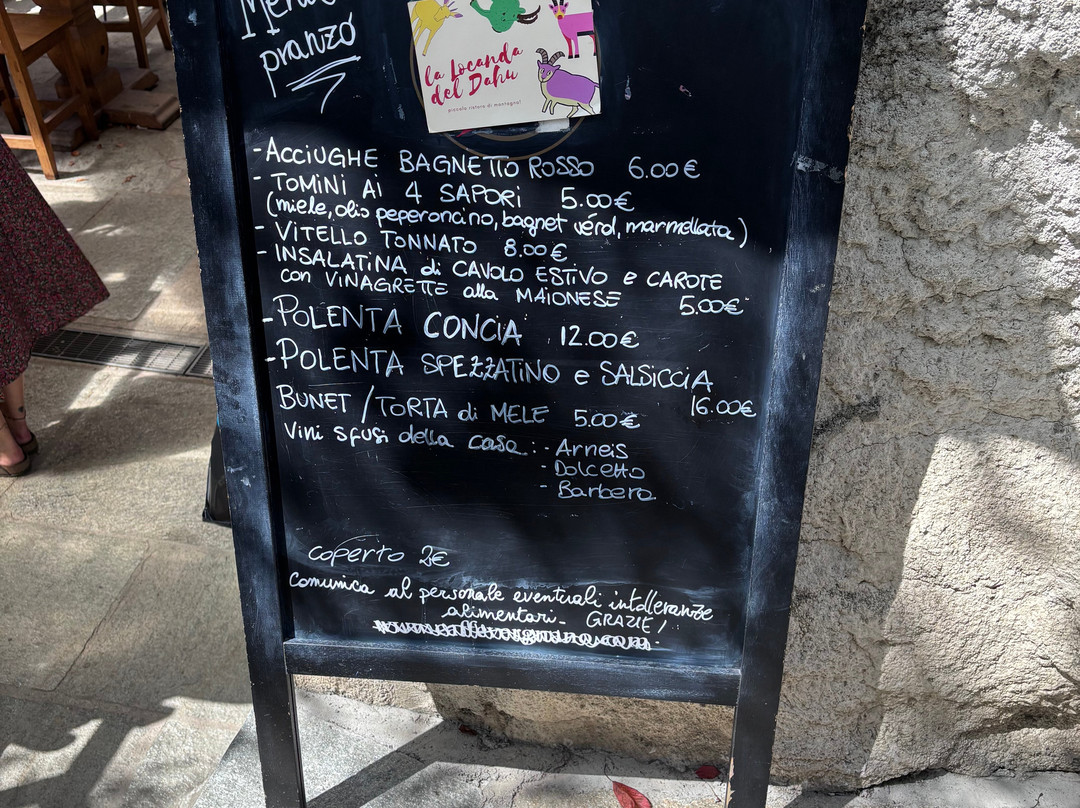 Menù
pranzo
la Locanda
del Dahu
piccolo ristoro di montagna!
- ACCIUGHE BAGNETTO ROSSO 6.00€
- TOMINI Ai 4 SAPORI 5.00€
(miele, olio peperoncino, bagnet vérd, marmellata)
- VITELLO TONNATO 8.00€
- INSALATINA di CAVOLO ESTIVO e CAROTE
con VINAGRETTE alla MAIONESE 5.00€
- POLENTA CONCIA 12.00€
- POLENTA SPEZZATINO e SALSICCIA
16.00€
BUNET / TORTA di MELE 5.00€
Vini sfusi della casa: - Arneis
- Dolcetto
- Barbera
coperto 2€
comunica al personale eventuali intolleranze
alimentari - GRAZIE!